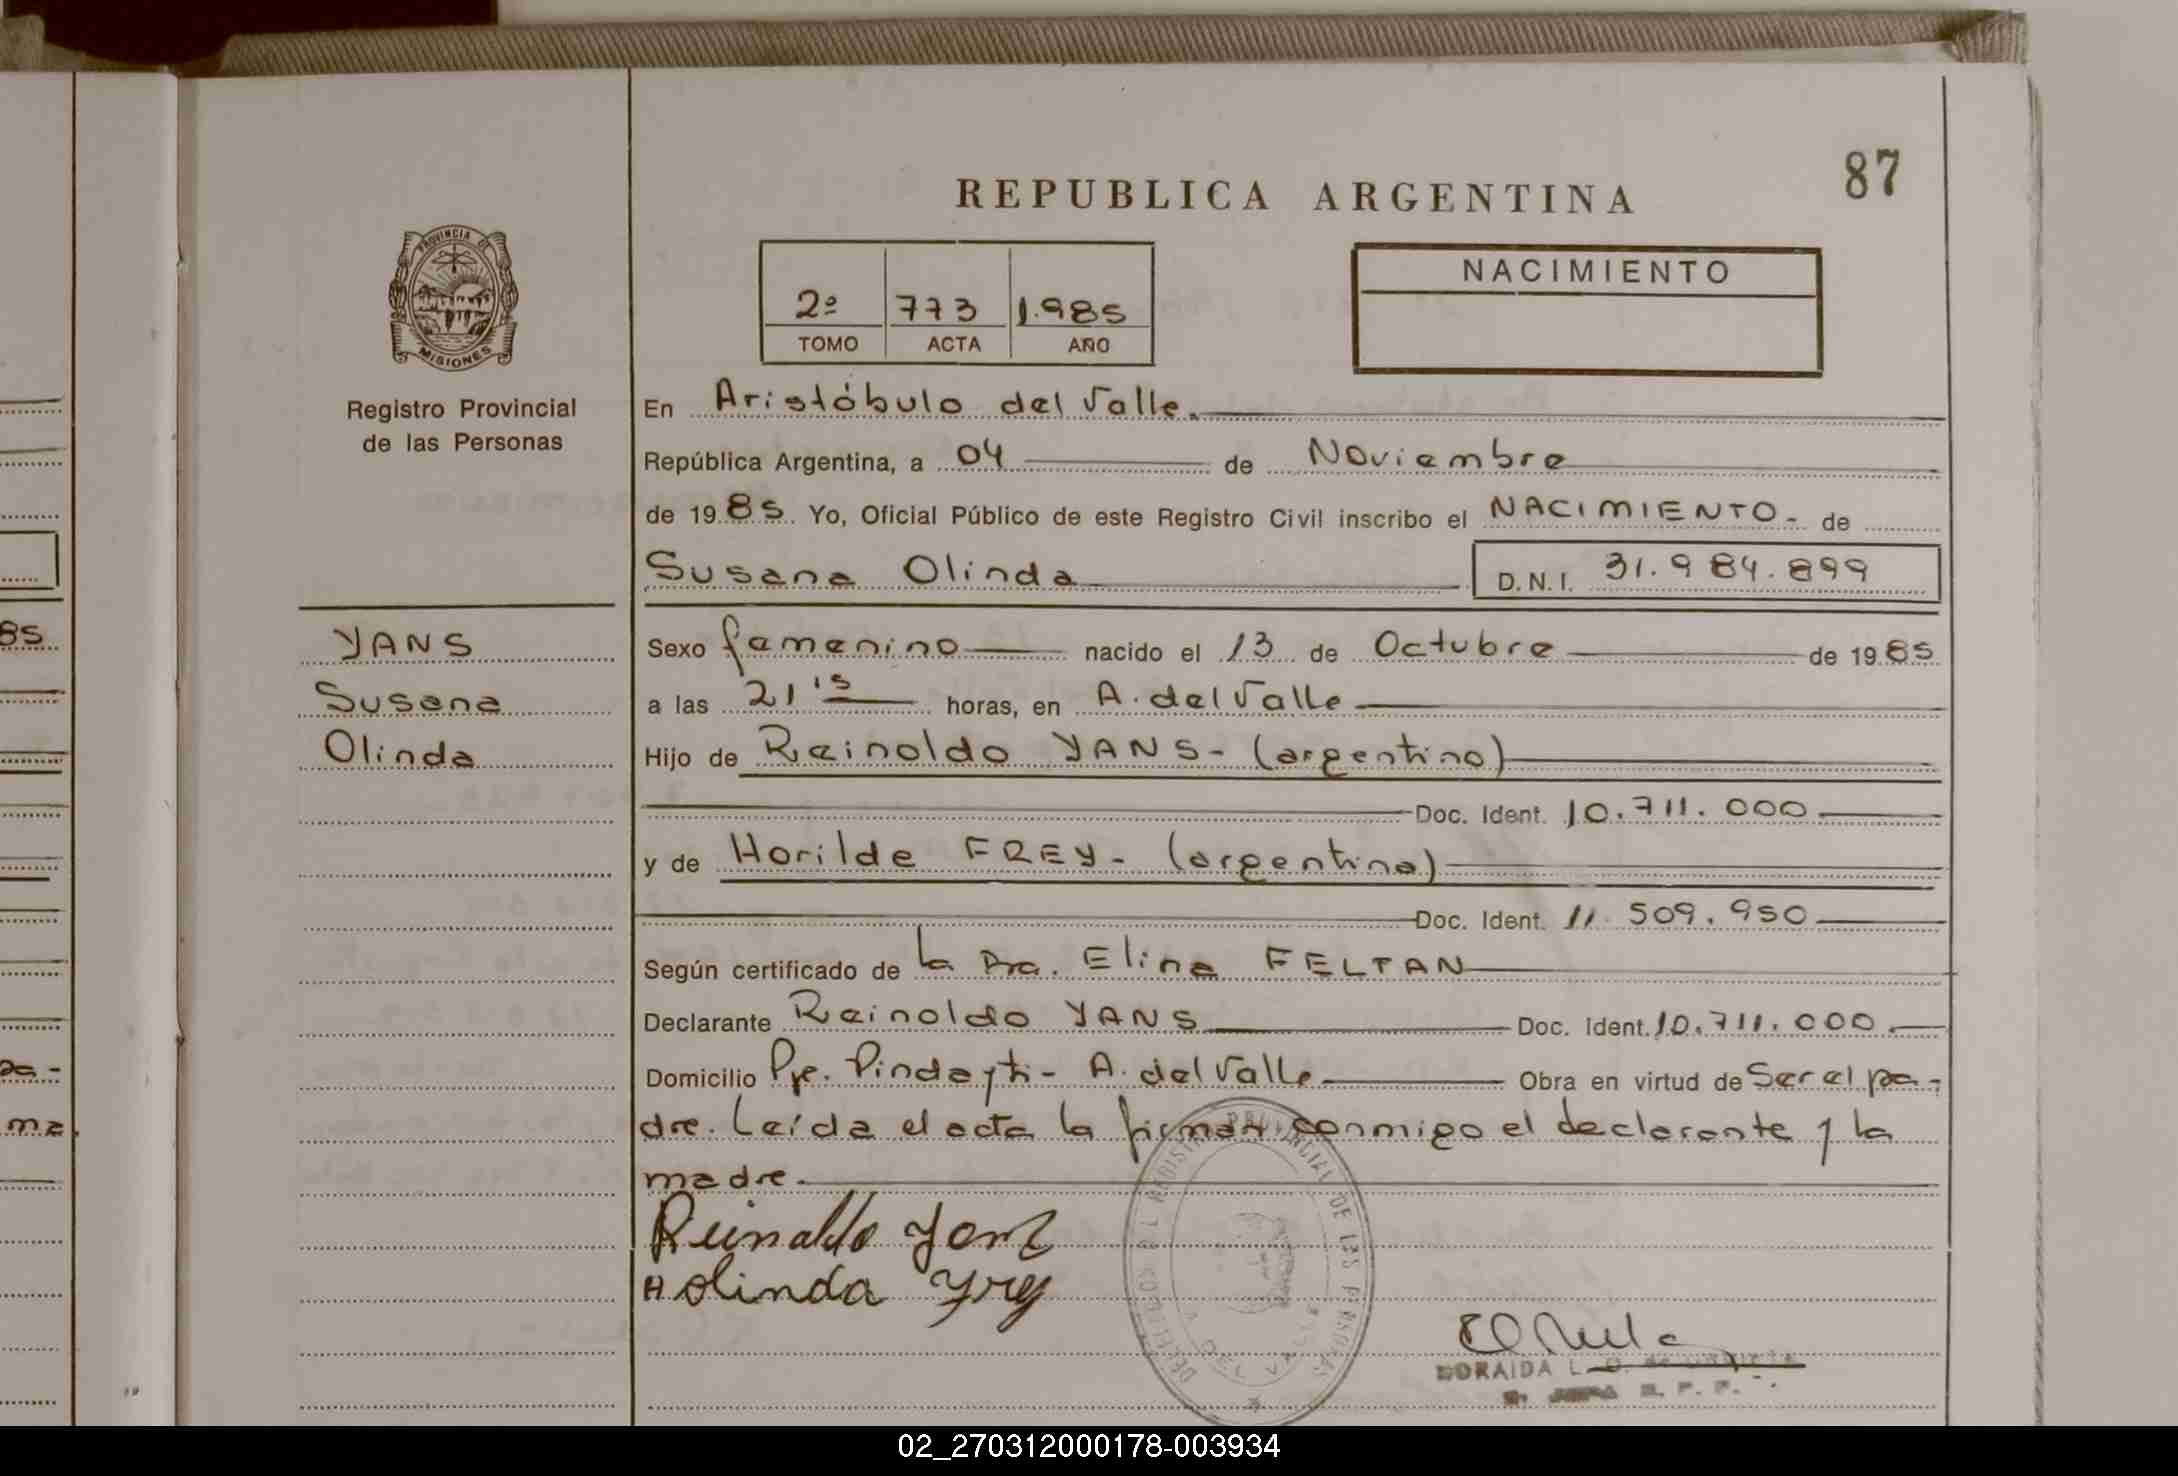 87
REPUBLICA ARGENTINA
PROVINCIA DE
MISIONES
2º 773 1.985
TOMO ACTA AÑO
NACIMIENTO
Registro Provincial
de las Personas
En Aristóbulo del Valle.
República Argentina, a 04 de Noviembre
de 1985 Yo, Oficial Público de este Registro Civil inscribo el NACIMIENTO- de
Susana Olinda D.N.I. 31.984.899
YANS
Susana
Olinda
Sexo femenino nacido el 13 de Octubre de 1985
a las 21 15 horas, en A. del Valle
Hijo de Reinoldo YANS- (argentino)
Doc. Ident. 10.711.000
y de Horilde FREY- (argentina)
Doc. Ident. 11.509.950
Según certificado de la Dra. Elina FELTAN
Declarante Reinoldo YANS Doc. Ident. 10.711.000.
Domicilio Pje. Pindayti- A. del Valle Obra en virtud de Ser el pa-
dre. Leída el acta la firman conmigo el declarante y la
madre.
Reinaldo
Holinda
DEL REGISTRO PROVINCIAL DE LAS PERSONAS
A DEL VALLE
85
pa-
ma
02_270312000178-003934